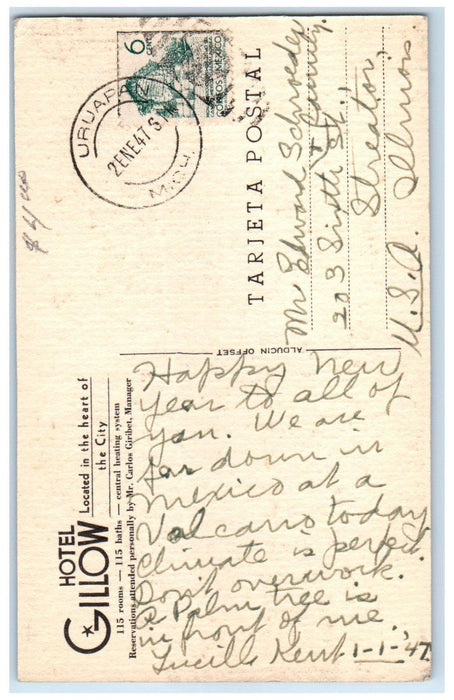 6
CORREOS MEXICO
URUAPAN
2 ENE 47 S
MICH.
$4
TARJETA POSTAL
Mr Edward Schroeder
& Family
203 Sixth St.,
Streator,
Illinois
U.S.A.
ALDUCIN OFFSET
HOTEL
GILLOW
Located in the heart of
the City
115 rooms — 115 baths — central heating system
Reservations attended personally by Mr. Carlos Giribet, Manager
Happy New
Year to all of
you. We are
far down in
Mexico at a
Valcano today
Climate is perfect.
Don't overwork.
A Palm tree is
in front of me.
Lucille Kent 1-1-'47